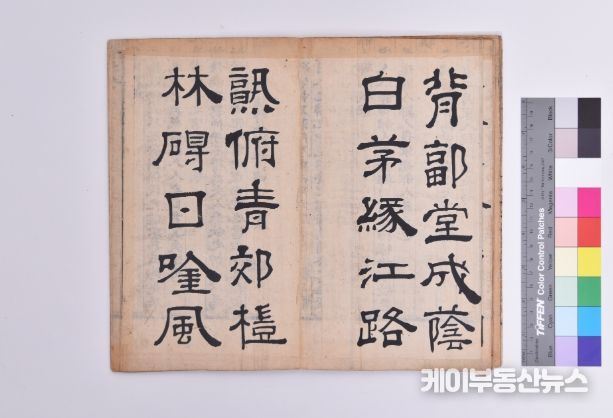 背郭堂成蔭
白茅緣江路
熟俯青郊榿
林碍日吟風
TIFFEN Color Control Patches
Blue
Cyan
Green
Yellow
Red
Magenta
White
3/Color
Black
케이부동산뉴스